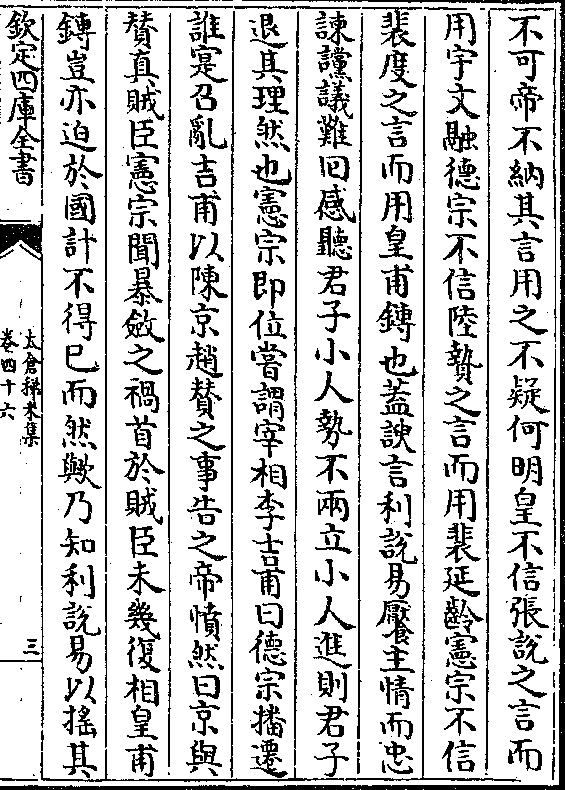 不可帝不納其言用之不疑何明皇不信張說之言而
用宇文融德宗不信陸贄之言而用裴延齡憲宗不信
裴度之言而用皇甫鎛也蓋諛言利說易厭主情而忠
諫讜議難回感聽君子小人勢不兩立小人進則君子
退其理然也憲宗即位嘗謂宰相李吉甫曰德宗播遷
誰寔召亂吉甫以陳京趙賛之事告之帝憤然曰京與
賛真賊臣憲宗聞暴斂之禍首於賊臣未幾復相皇甫
鎛豈亦迫於國計不得已而然歟乃知利說易以搖其
欽定四庫全書
太倉稊米集
卷四十六
三